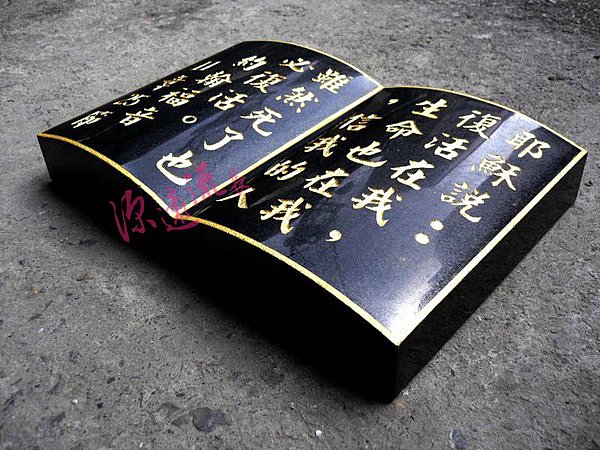 耶蘇說：
復活在我，
生命也在我
，信我的人
雖然死了也
必復活。
約翰福音
源遠流長